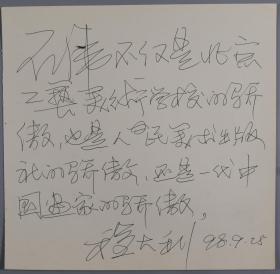 石伟不仅是北京
工艺美术学校的骄
傲,也是人民美术出版
社的骄傲,还是一代中
国画家的骄傲。
程大利 98.9.25